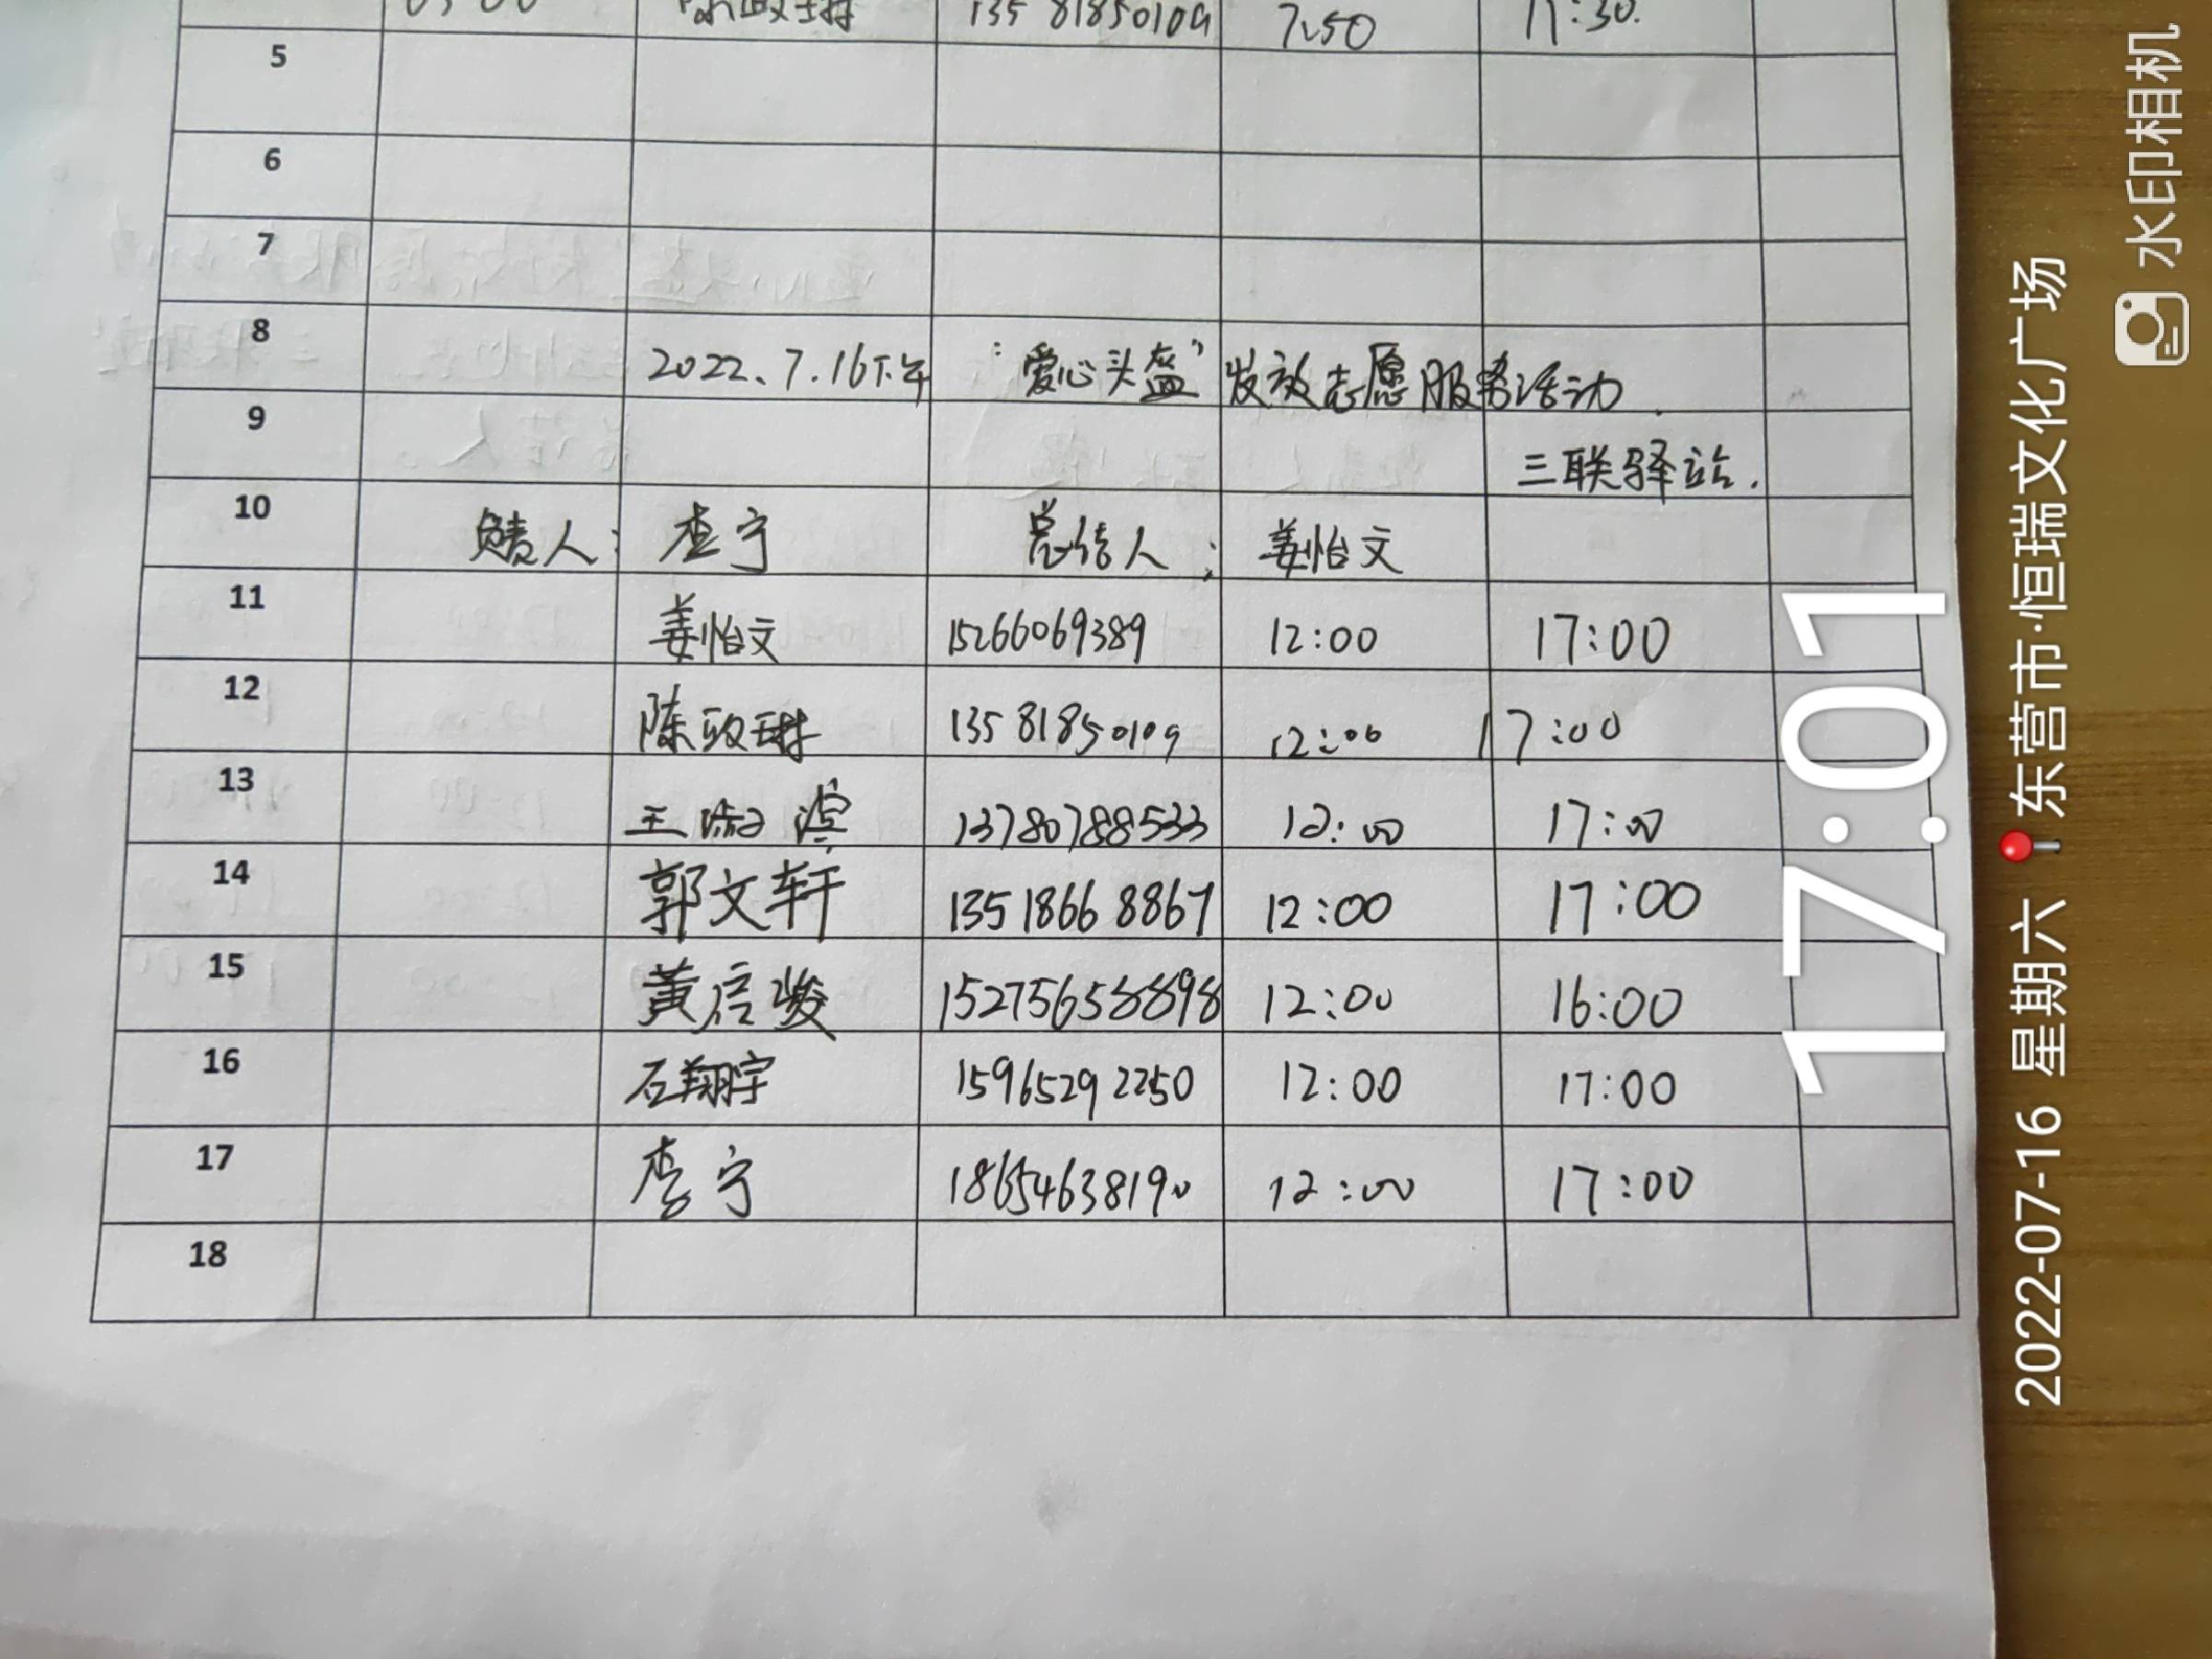 13581850109 7:50 11:30.
5
6
7
8 2022.7.16下午 "爱心头盔"发放志愿服务活动.
9 三联驿站.
10 负责人: 李宁 总结人: 姜怡文
11 姜怡文 15266069389 12:00 17:00
12 陈玫琳 13581850109 12:00 17:00
13 王淑滢 13780788533 12:00 17:00
14 郭文轩 13518668867 12:00 17:00
15 黄启骏 15275658898 12:00 16:00
16 石翔宇 15965292250 12:00 17:00
17 李宁 18654638190 12:00 17:00
18
17:01
2022-07-16 星期六 东营市·恒瑞文化广场
水印相机